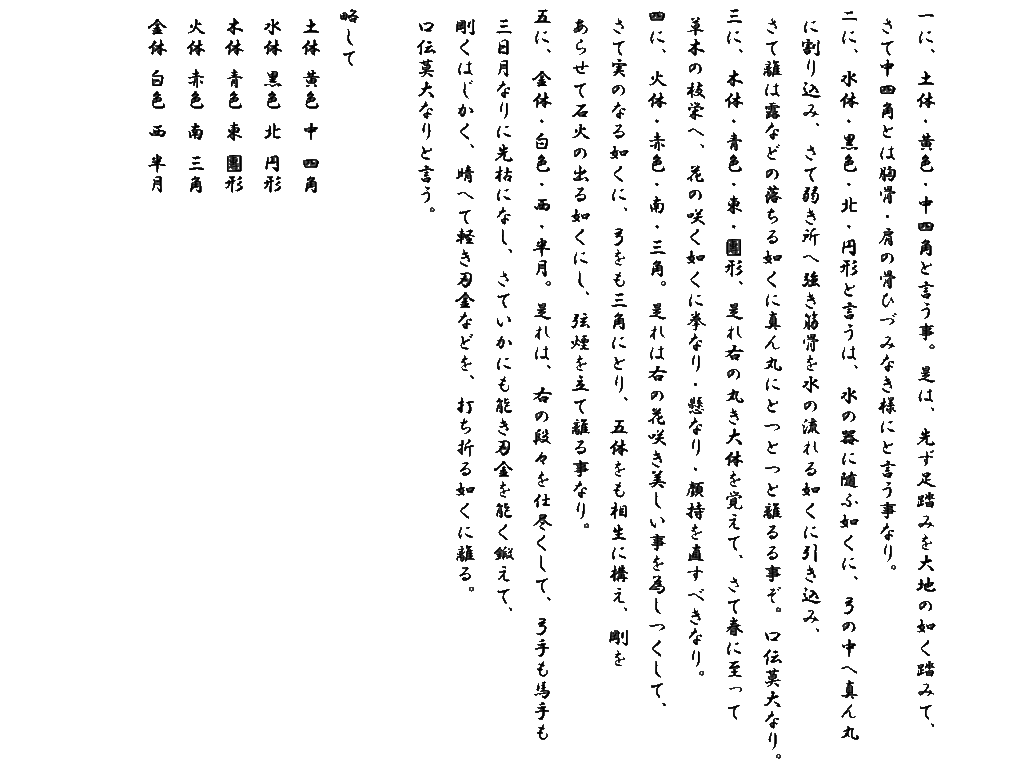 一に、土体・黄色・中四角と言う事。是は、先ず足踏みを大地の如く踏みて、
さて中四角とは胸骨・肩の骨ひづみなき様にと言う事なり。
二に、水体・黒色・北・円形と言うは、水の器に随ふ如くに、弓の中へ真ん丸
に割り込み、さて弱き所へ強き筋骨を水の流れる如くに引き込み、
さて離は露などの落ちる如くに真ん丸にとつとつと離るる事ぞ。口伝莫大なり。
三に、木体・青色・東・團形、是れ右の丸き大体を覚えて、さて春に至って
草木の枝栄へ、花の咲く如くに拳なり・懸なり・顔持を直すべきなり。
四に、火体・赤色・南・三角。是れは右の花咲き美しい事を為しつくして、
さて実のなる如くに、弓をも三角にとり、五体をも相生に構え、剛を
あらせて石火の出る如くにし、弦煙を立て離る事なり。
五に、金体・白色・西・半月。是れは、右の段々を仕尽くして、弓手も馬手も
三日月なりに先枯になし、さていかにも能き刃金を能く鍛えて、
剛くはじかく、晴へて軽き刃金などを、打ち折る如くに離る。
口伝莫大なりと言う。
略して
土体 黄色 中 四角
水体 黒色 北 円形
木体 青色 東 團形
火体 赤色 南 三角
金体 白色 西 半月